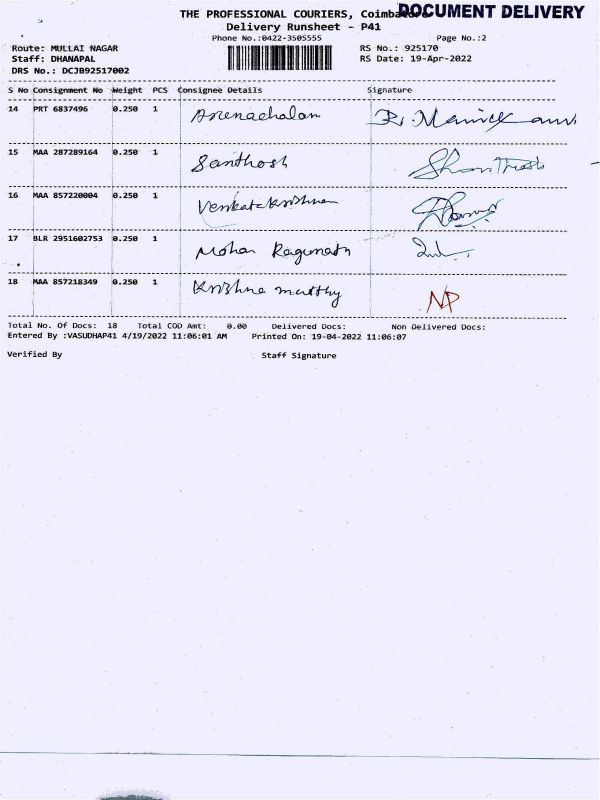 THE PROFESSIONAL COURIERS, Coimba
DOCUMENT DELIVERY
Delivery Runsheet - P41
Phone No.:0422-3505555
Page No.:2
Route: MULLAI NAGAR
RS No.: 925170
Staff: DHANAPAL
RS Date: 19-Apr-2022
DRS No.: DCJB92517002
S No Consignment No Weight PCS Consignee Details Signature
14 PRT 6837496 0.250 1 Arenachalam
15 MAA 287289164 0.250 1 Santhosh
16 MAA 857220004 0.250 1 Venkatakrishnan
17 BLR 2951602753 0.250 1 Mohan Ragunath
18 MAA 857218349 0.250 1 Krishna murthy NP
Total No. Of Docs: 18 Total COD Amt: 0.00 Delivered Docs: Non Delivered Docs:
Entered By :VASUDHAP41 4/19/2022 11:06:01 AM Printed On: 19-04-2022 11:06:07
Verified By Staff Signature